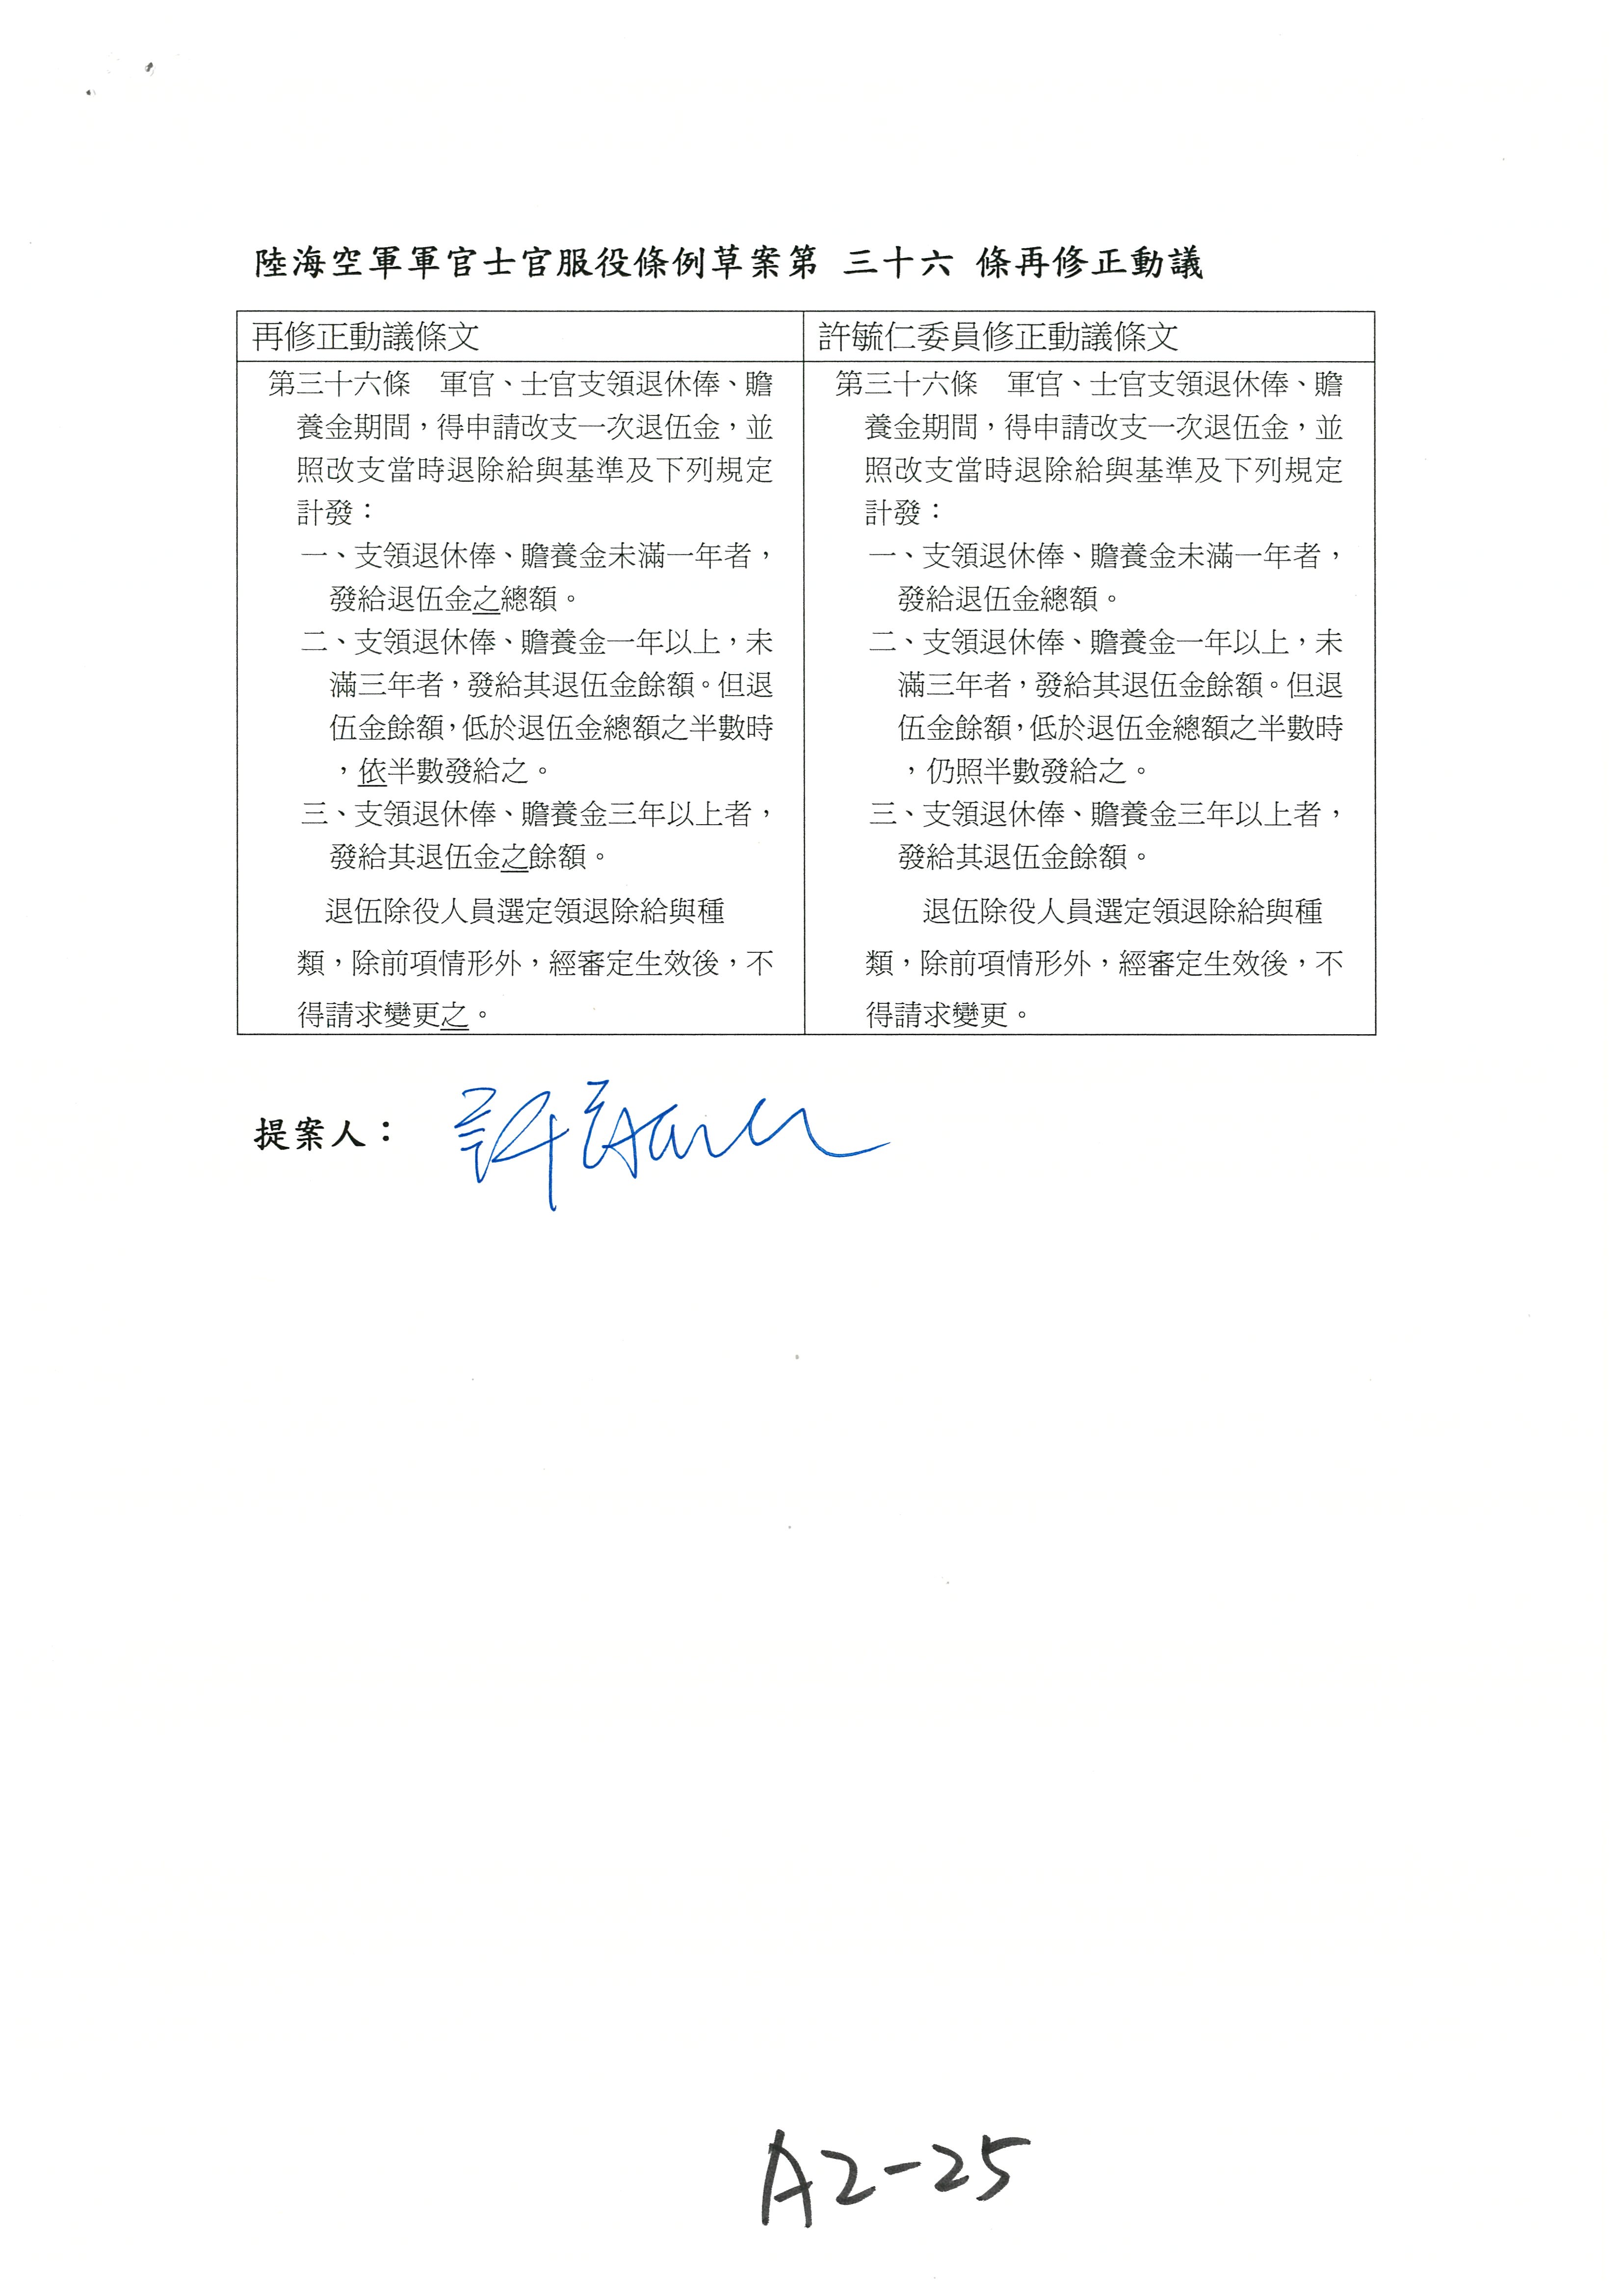 陸海空軍軍官士官服役條例草案第 三十六 條再修正動議
再修正動議條文
第三十六條　軍官、士官支領退休俸、贍
養金期間，得申請改支一次退伍金，並
照改支當時退除給與基準及下列規定
計發：
一、支領退休俸、贍養金未滿一年者，
發給退伍金之總額。
二、支領退休俸、贍養金一年以上，未
滿三年者，發給其退伍金餘額。但退
伍金餘額，低於退伍金總額之半數時
，依半數發給之。
三、支領退休俸、贍養金三年以上者，
發給其退伍金之餘額。
退伍除役人員選定領退除給與種
類，除前項情形外，經審定生效後，不
得請求變更之。
許毓仁委員修正動議條文
第三十六條　軍官、士官支領退休俸、贍
養金期間，得申請改支一次退伍金，並
照改支當時退除給與基準及下列規定
計發：
一、支領退休俸、贍養金未滿一年者，
發給退伍金總額。
二、支領退休俸、贍養金一年以上，未
滿三年者，發給其退伍金餘額。但退
伍金餘額，低於退伍金總額之半數時
，仍照半數發給之。
三、支領退休俸、贍養金三年以上者，
發給其退伍金餘額。
退伍除役人員選定領退除給與種
類，除前項情形外，經審定生效後，不
得請求變更。
提案人：
A2-25